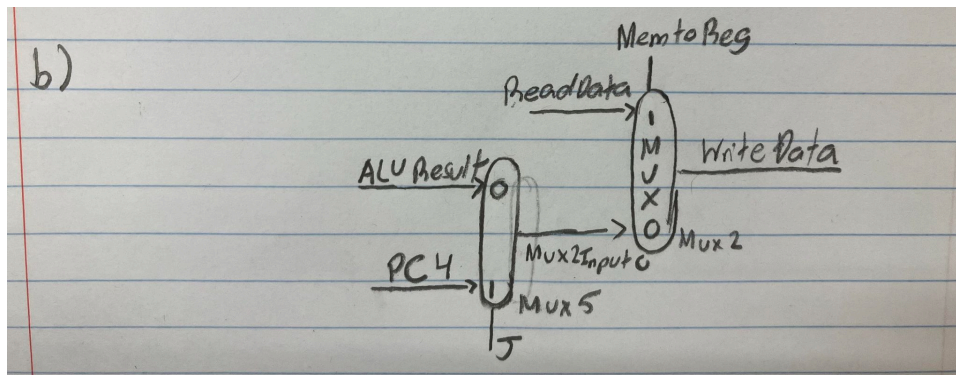 b)
MemtoReg
ReadData
1
MUX
WriteData
ALU Result
0
0
Mux 2
Mux2Input0
PC4
1
Mux 5
J